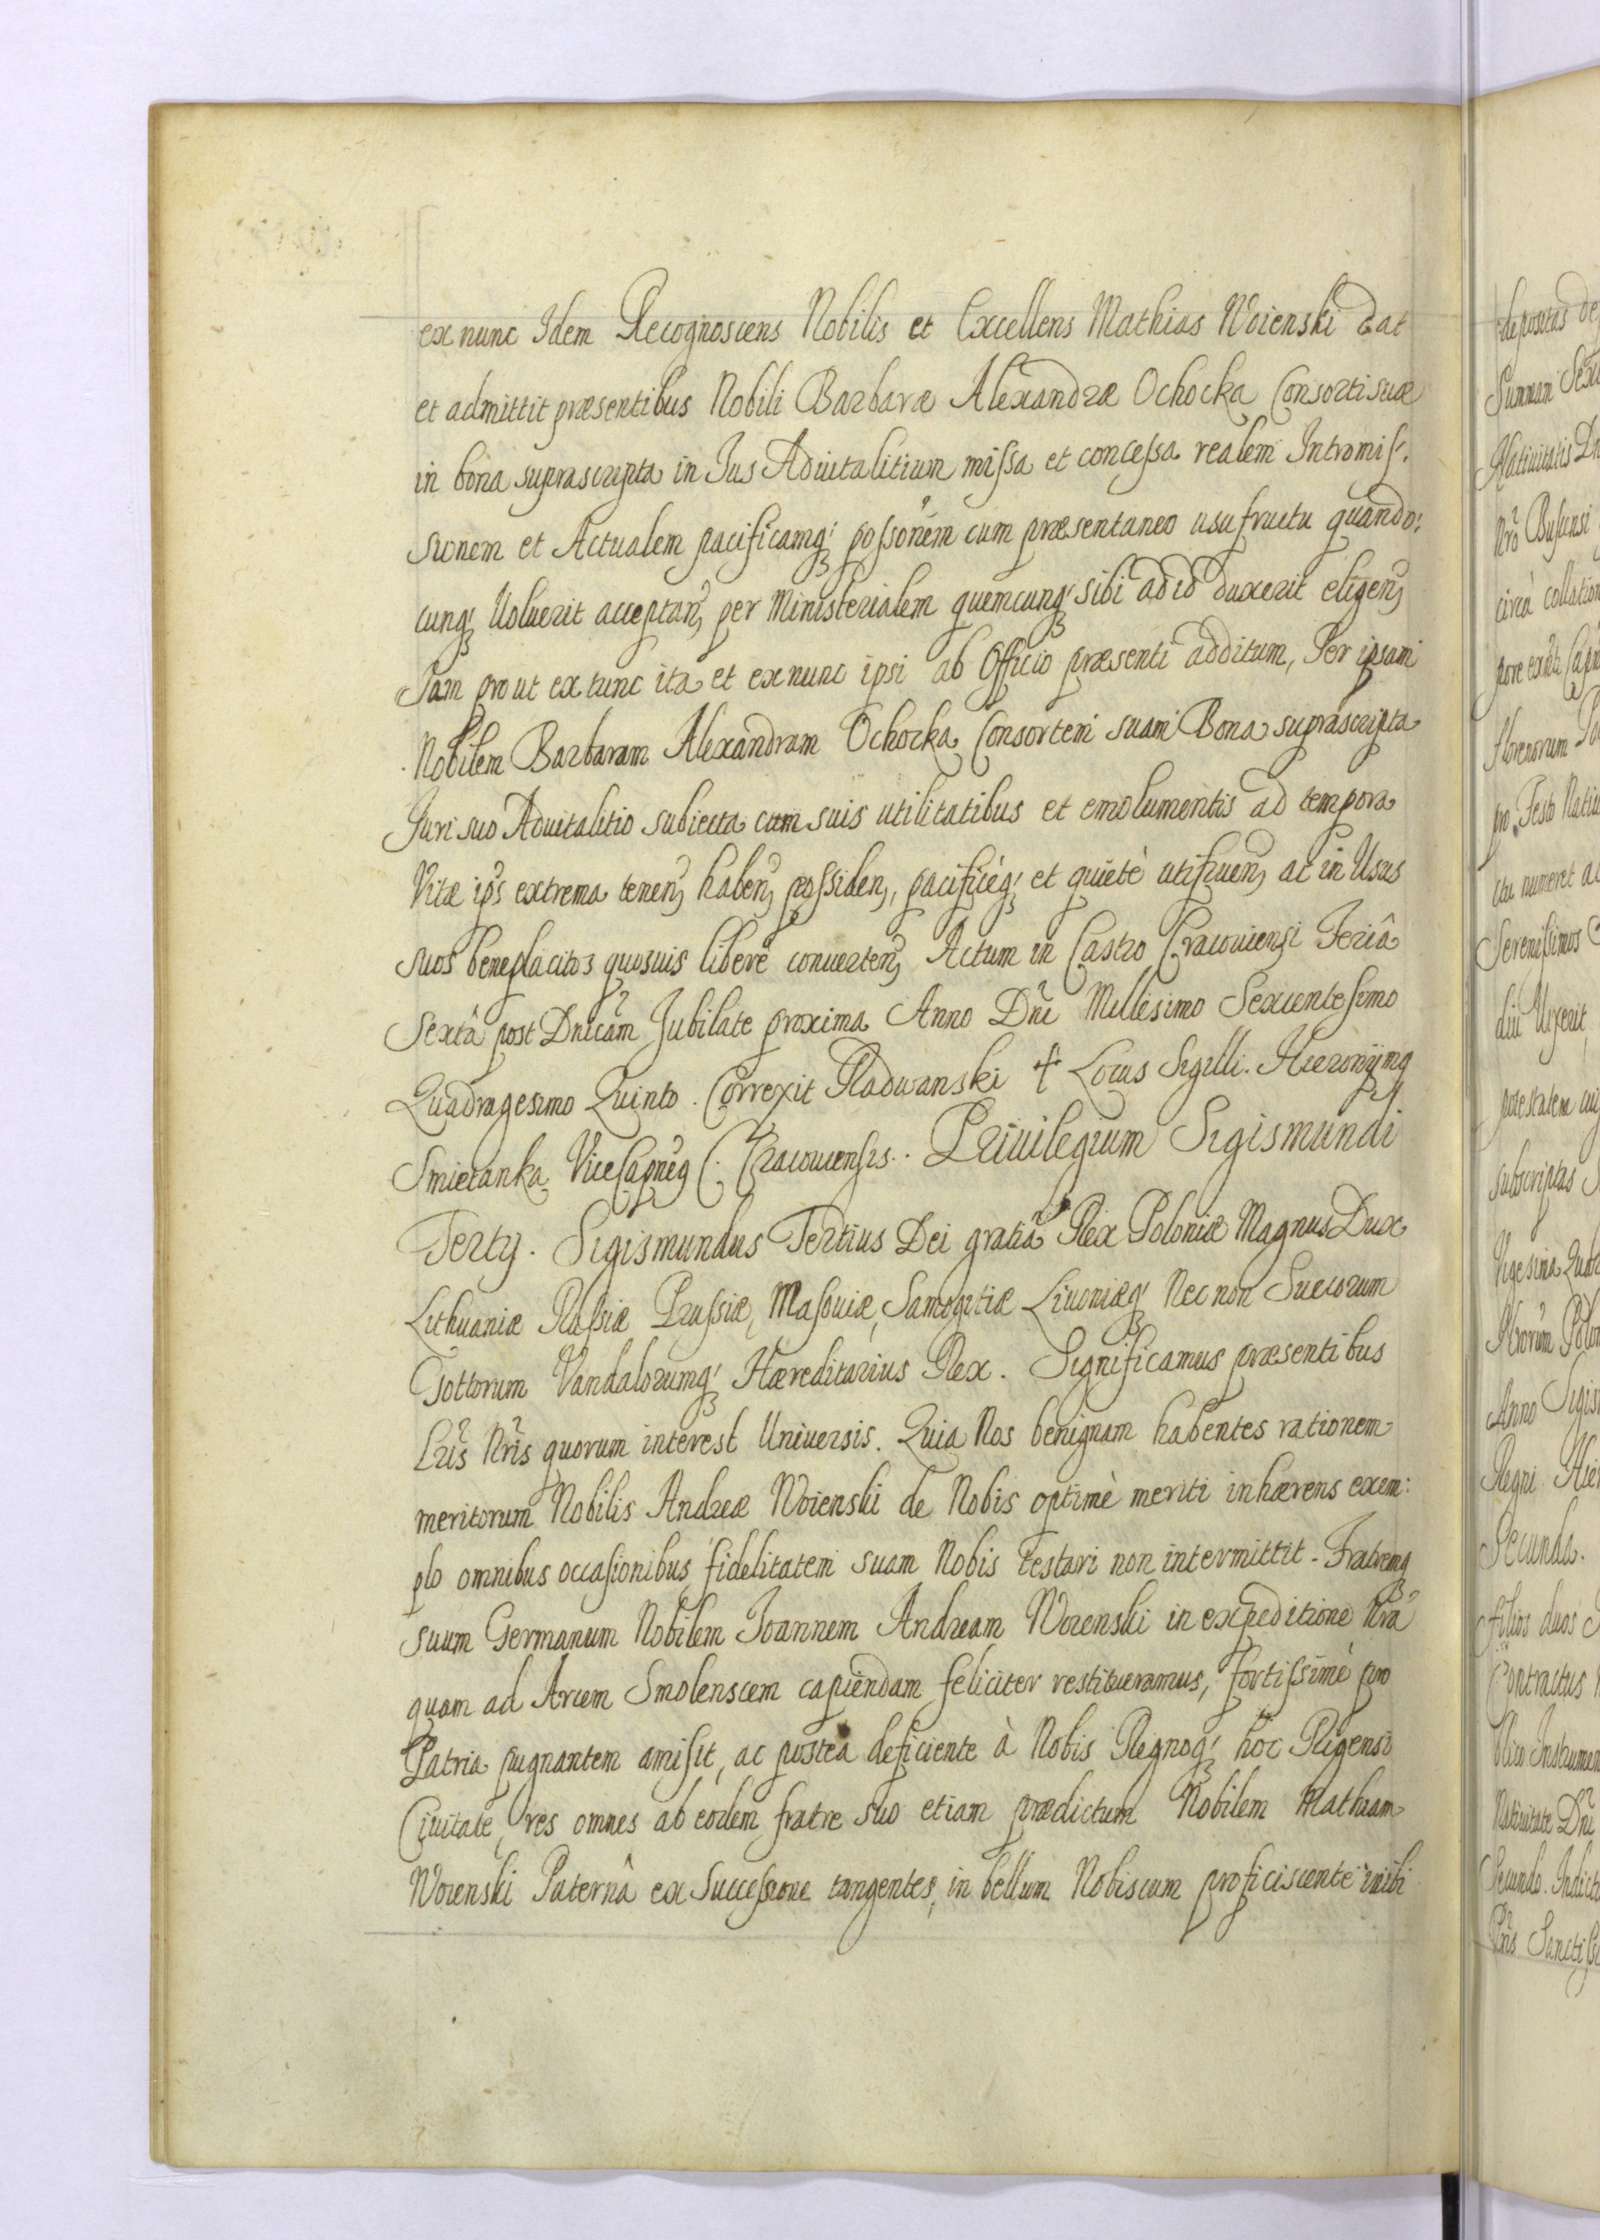 ex nunc Idem Recognoscens Nobilis et Excellens Mathias Woienski dat
et admittit præsentibus Nobili Barbaræ Alexandræ Ochocka Consorti suæ
in bona suprascripta in Jus Aduitalitium missa et concessa realem Intromis-
sionem et Actualem pacificamq; possōnem cum præsentaneo usufructu quando:
cunq; Voluerit acceptan, per Ministerialem quemcunq; sibi ad id duxerit eligen,
Jam prout ex tunc ita et ex nunc ipsi ab Officio præsenti additum, Per ipsam
Nobilem Barbaram Alexandram Ochocka Consortem suam Bona suprascripta
Juri suo Aduitalitio subiecta cum suis utilitatibus et emolumentis ad tempora
Vitæ ips extrema tenen, haben, possiden, pacificèq; et quietè utifruen, ac in Usus
suos beneplacitos quosuis liberè conuerten, Actum in Castro Cracouiensi Feriâ
Sextâ post Dnicam Jubilate proxima Anno Dni Millesimo Sexcentesimo
Quadragesimo Quinto. Correxit Radwanski + Locus Sigilli. Hieronymg
Smietanka ViceCapneg C. Cracouiensis. Priuilegium Sigismundi
Tertÿ. Sigismundus Tertius Dei gratiâ Rex Poloniæ Magnus Dux
Lithuaniæ Russiæ Prussiæ, Masouiæ, Samogitiæ Liuoniæq; Nec non Suecorum
Gottorum Vandalorumq; Hæreditarius Rex. Significamus præsentibus
Lris Nris quorum interest Uniuersis. Quia Nos benignam habentes rationem
meritorum Nobilis Andreæ Woienski de Nobis optimè meriti inhærens exem:
plo omnibus occasionibus fidelitatem suam Nobis testari non intermittit. Fratremq
suum Germanum Nobilem Joannem Andream Woienski in expeditione Nrâ
quam ad Arcem Smolenscem capiendam feliciter restitueramus, fortissimè pro
Patria pugnantem amisit, ac postea deficiente à Nobis Regnoq; hoc Rigensi
Ciuitate, res omnes ab eodem fratre suo etiam prædictum Nobilem Mathiam
Woienski Paternâ ex Successione tangentes, in bellum Nobiscum proficiscente inibi